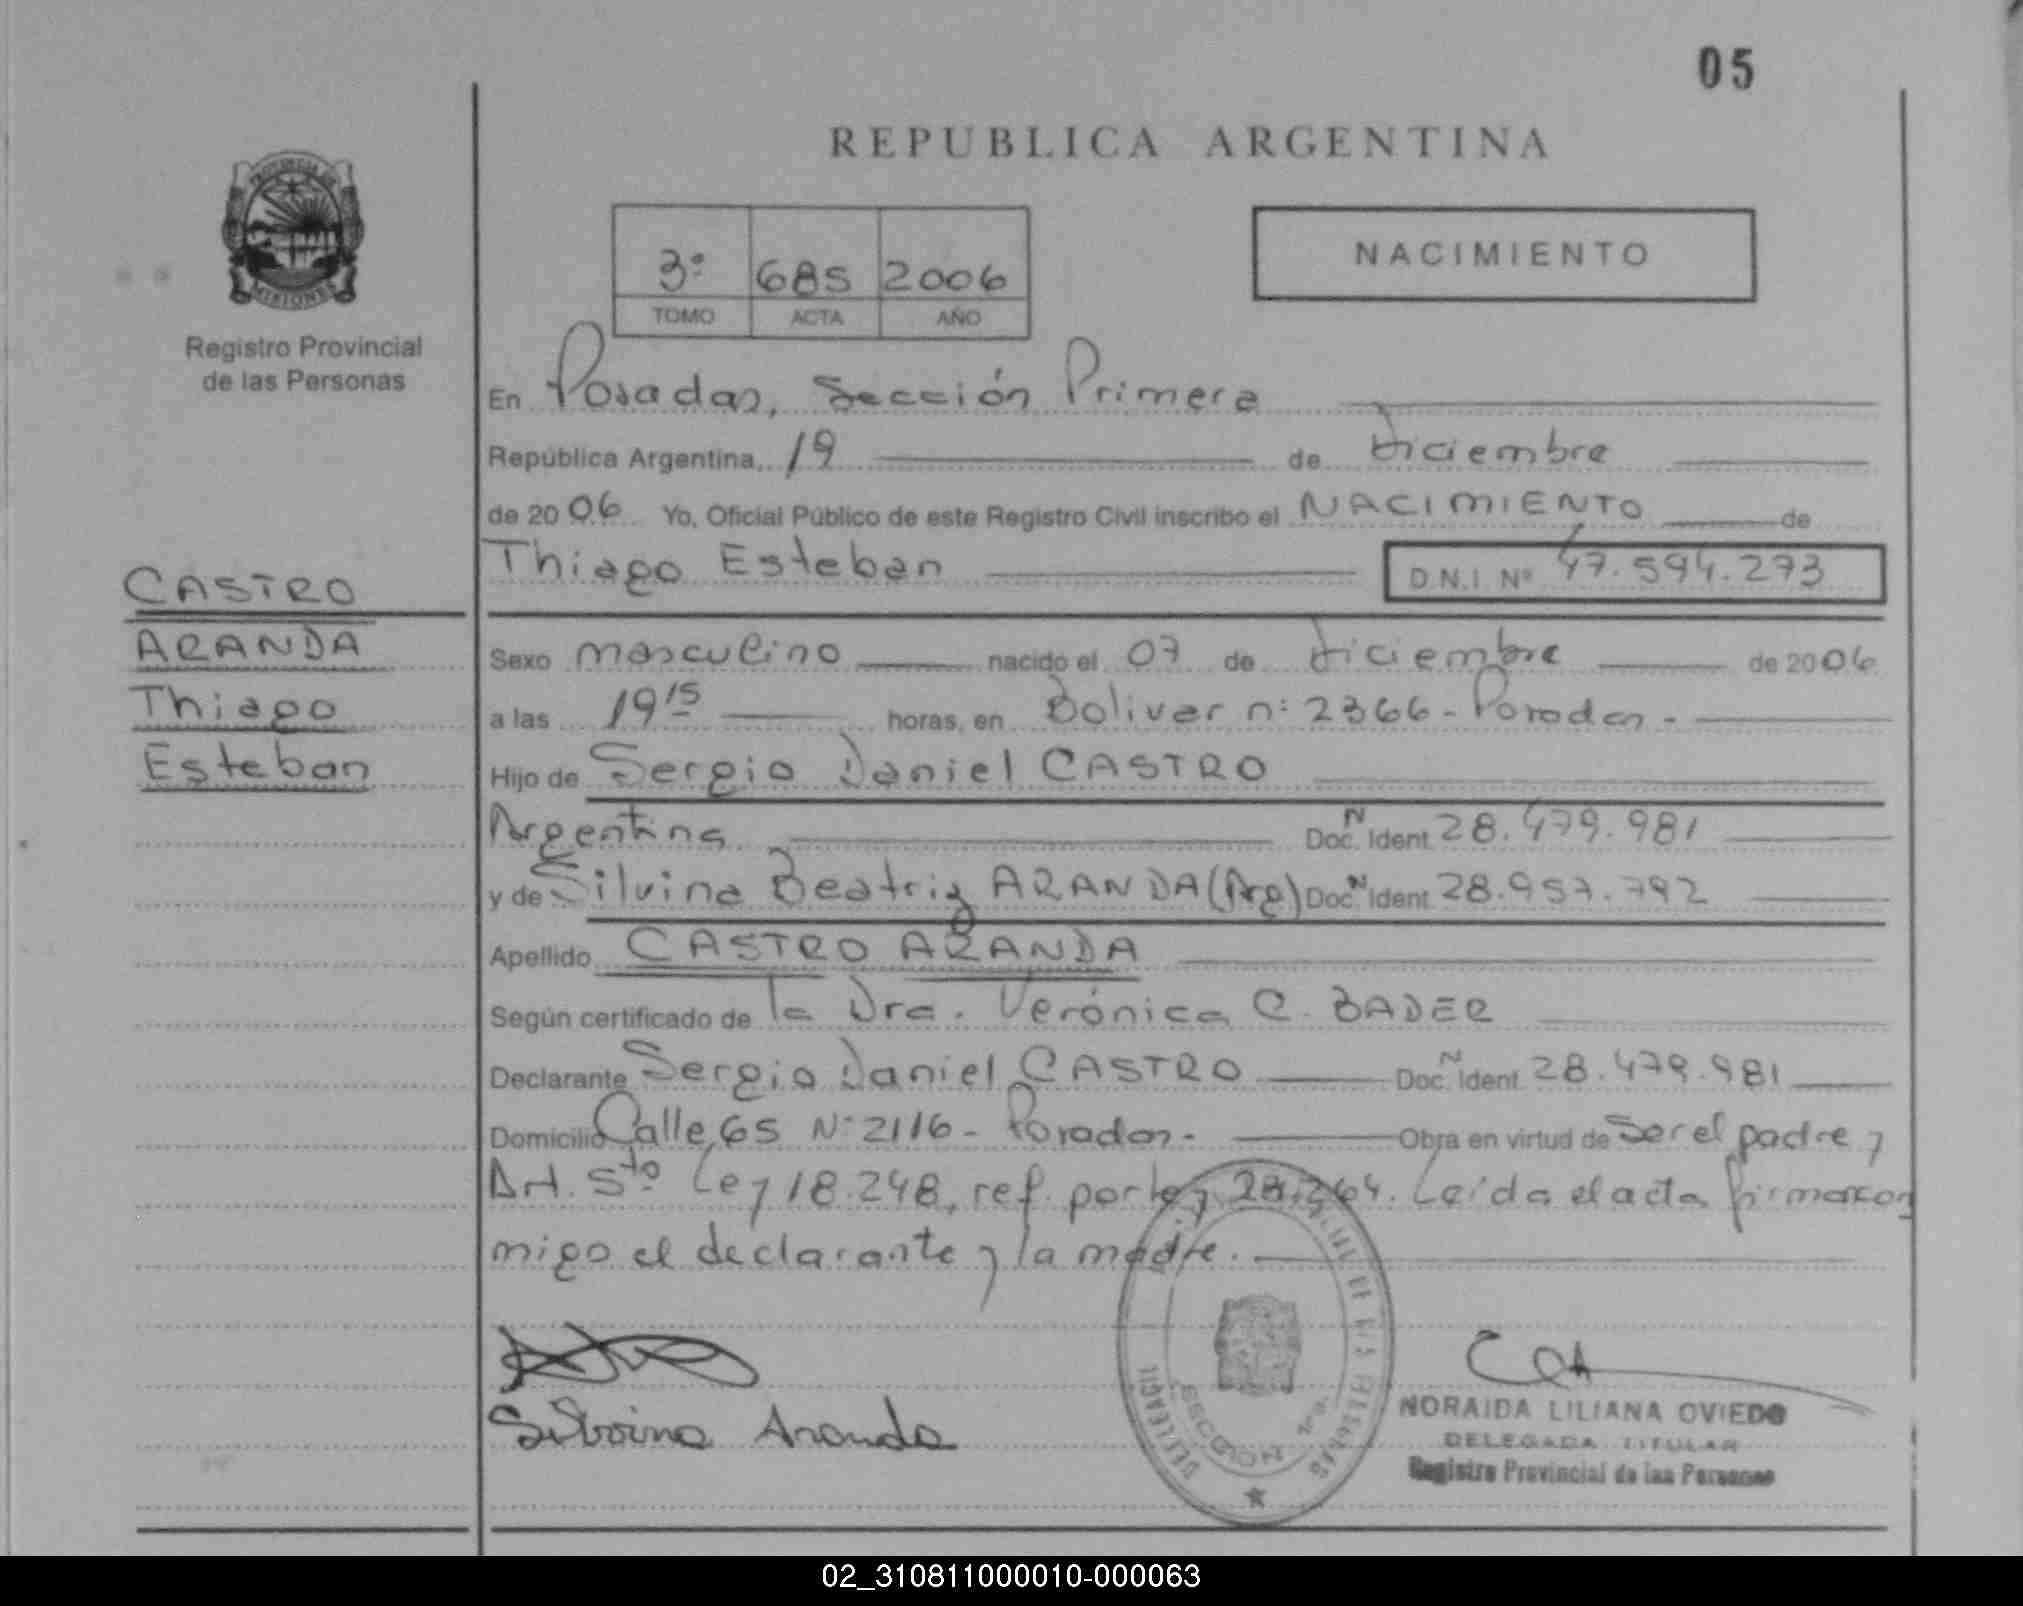 05
REPUBLICA ARGENTINA
PROVINCIA DE
MISIONES
Registro Provincial
de las Personas
3º 685 2006
TOMO ACTA AÑO
NACIMIENTO
En Posadas, Sección Primera
República Argentina, 19 de Diciembre
de 2006 Yo, Oficial Público de este Registro Civil inscribo el NACIMIENTO de
Thiago Esteban D.N.I. Nº 47.594.273
CASTRO
ARANDA
Thiago
Esteban
Sexo masculino nacido el 07 de Diciembre de 2006
a las 19 15 horas, en Bolivar nº 2366 - Posadas -
Hijo de Sergio Daniel CASTRO
Argentina Doc. N Ident 28.479.981
y de Silvina Beatriz ARANDA (Arg) Doc. N Ident 28.957.792
Apellido CASTRO ARANDA
Según certificado de la Dra. Verónica C. BADER
Declarante Sergio Daniel CASTRO Doc. N Ident 28.479.981
Domicilio Calle 65 Nº 2116 - Posadas - Obra en virtud de Ser el padre y
Art. 5to Ley 18.248, ref. por ley 23.264. Leída el acta firma con
migo el declarante y la madre.
Silvina Aranda
NORAIDA LILIANA OVIEDO
DELEGADA TITULAR
Registro Provincial de las Personas
02_310811000010-000063